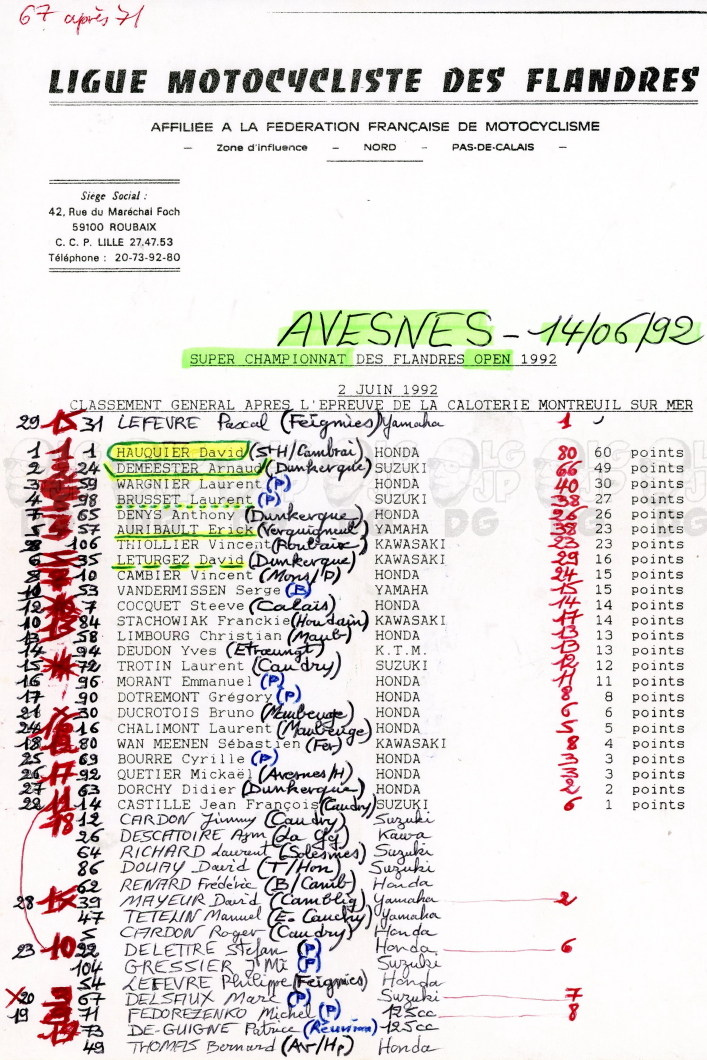 67 après 71
LIGUE MOTOCYCLISTE DES FLANDRES
AFFILIEE A LA FEDERATION FRANÇAISE DE MOTOCYCLISME
— Zone d'influence — NORD — PAS-DE-CALAIS —
Siège Social :
42, Rue du Maréchal Foch
59100 ROUBAIX
C. C. P. LILLE 27.47.53
Téléphone : 20-73-92-80
AVESNES - 14/06/92
SUPER CHAMPIONNAT DES FLANDRES OPEN 1992
2 JUIN 1992
CLASSEMENT GENERAL APRES L'EPREUVE DE LA CALOTERIE MONTREUIL SUR MER
29 15 31 LEFEVRE Pascal (Feignies) Yamaha 1
1 1 1 HAUQUIER David (St H/Cambrai) HONDA 80 60 points
2 24 DEMEESTER Arnaud (Dunkerque) SUZUKI 66 49 points
3 59 WARGNIER Laurent (P) HONDA 40 30 points
4 98 BRUSSET Laurent (P) SUZUKI 38 27 points
7 65 DENYS Anthony (Dunkerque) HONDA 26 26 points
5 57 AURIBAULT Erick (Verquigneul) YAMAHA 38 23 points
106 THIOLLIER Vincent (Roubaix) KAWASAKI 23 23 points
6 35 LETURGEZ David (Dunkerque) KAWASAKI 29 16 points
10 CAMBIER Vincent (Mons/P) HONDA 24 15 points
10 53 VANDERMISSEN Serge (B) YAMAHA 15 15 points
12 7 COCQUET Steeve (Calais) HONDA 14 14 points
10 84 STACHOWIAK Franckie (Houdain) KAWASAKI 17 14 points
13 58 LIMBOURG Christian (Maub-) HONDA 13 13 points
14 94 DEUDON Yves (Etrœungt) K.T.M. 13 13 points
15 72 TROTIN Laurent (Caudry) SUZUKI 12 12 points
16 96 MORANT Emmanuel (P) HONDA 11 11 points
17 90 DOTREMONT Grégory (P) HONDA 8 8 points
21 30 DUCROTOIS Bruno (Maubeuge) HONDA 6 6 points
24 16 CHALIMONT Laurent (Maubeuge) HONDA 5 5 points
18 80 WAN MEENEN Sébastien (Fer) KAWASAKI 8 4 points
25 69 BOURRE Cyrille (P) HONDA 3 3 points
26 17 92 QUETIER Mickaël (Avesnes/H) HONDA 3 3 points
27 63 DORCHY Didier (Dunkerque) HONDA 2 2 points
22 11 14 CASTILLE Jean François (Caudry) SUZUKI 6 1 points
18 12 CARDON Jimmy (Caudry) Suzuki
26 DESCATOIRE Aym (La Gy) Kawa
64 RICHARD Laurent (Solesmes) Suzuki
86 DOUAY David (T/Hon) Suzuki
62 RENARD Frédéric (B/Camb) Honda
28 39 MAYEUR David (Camblig) Yamaha 2
47 TETELIN Manuel (E. Cauchy) Yamaha
5 CARDON Roger (Caudry) Honda
23 10 22 DELETTRE Stefan (P) Honda 6
104 GRESSIER J Mi (P) Suzuki
54 LEFEVRE Philippe (Feignies) Honda
X 20 67 DELSAUX Marc (P) Suzuki 7
19 71 FEDOREZENKO Michel (P) 125cc 8
73 DE-GUIGNE Patrice (Réunion) 125cc
49 THOMAS Bernard (Av/Hp) Honda